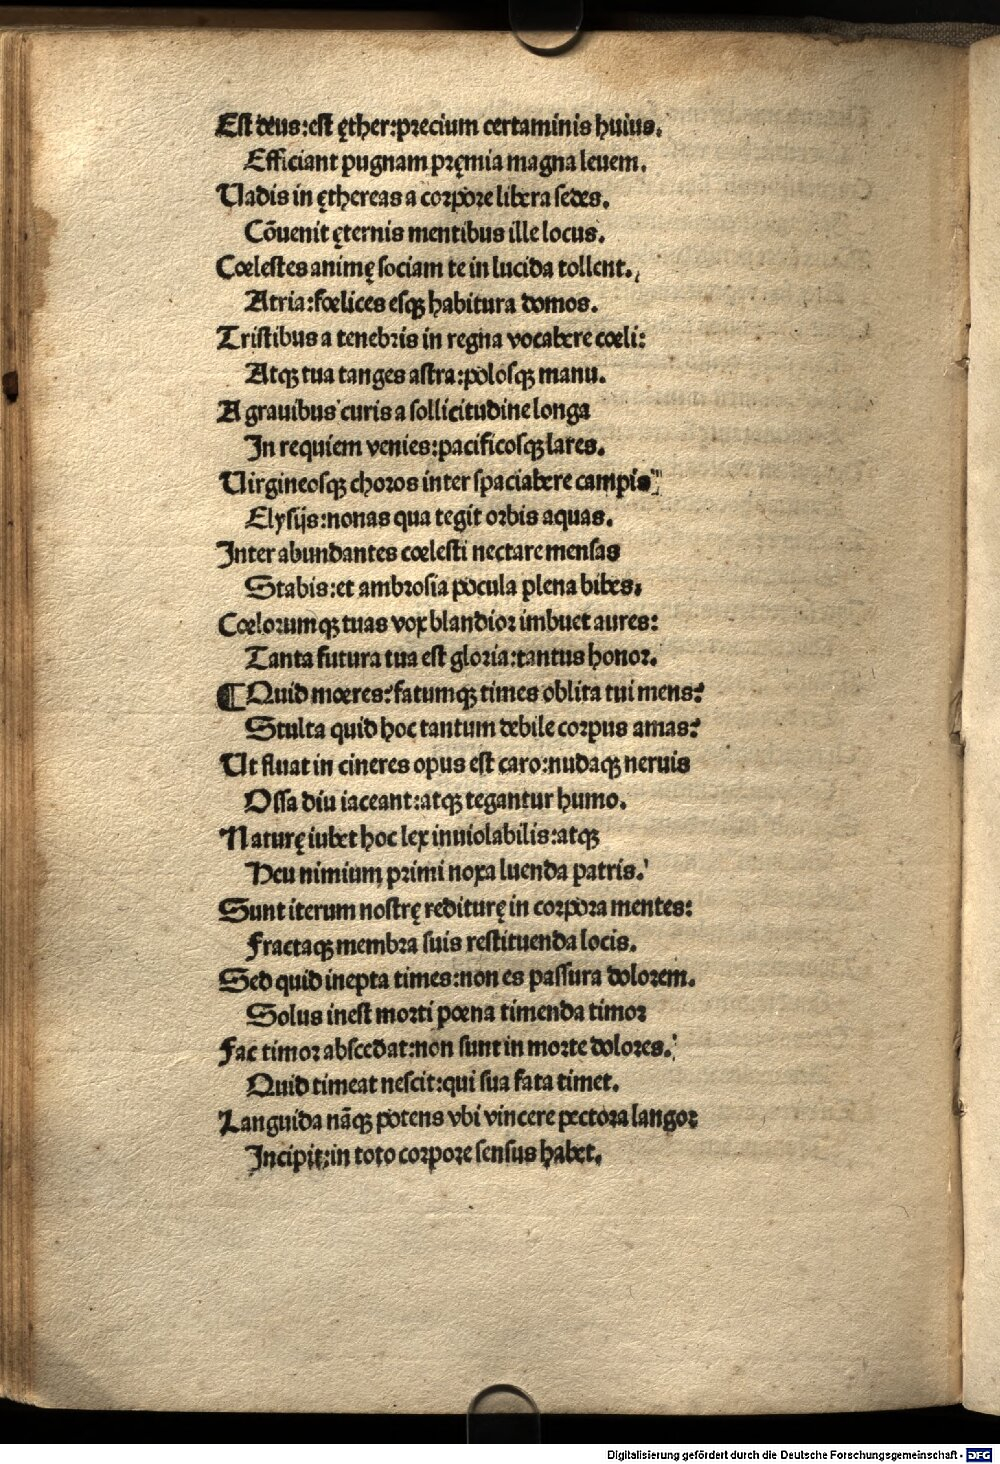 Est deus:est ęther:precium certaminis huius.
Efficiant pugnam pręmia magna leuem.
Vadis in ęthereas a corpore libera sedes.
Cōuenit ęternis mentibus ille locus.
Cœlestes animę sociam te in lucida tollent.
Atria:fœlices esqꝫ habitura domos.
Tristibus a tenebris in regna vocabere cœli:
Atqꝫ tua tanges astra:polosqꝫ manu.
A grauibus curis a sollicitudine longa
In requiem venies:pacificosqꝫ lares.
Virgineosqꝫ choros inter spaciabere campis
Elysijs:nonas qua tegit orbis aquas.
Inter abundantes cœlesti nectare mensas
Stabis:et ambrosia pocula plena bibes,
Cœlorumqꝫ tuas vox blandior imbuet aures:
Tanta futura tua est gloria:tantus honor.
¶ Quid mœres?fatumqꝫ times oblita tui mens?
Stulta quid hoc tantum debile corpus amas?
Ut fluat in cineres opus est caro:nudaqꝫ neruis
Ossa diu iaceant:atqꝫ tegantur humo.
Naturę iubet hoc lex inuiolabilis:atqꝫ
Heu nimium primi noxa luenda patris.
Sunt iterum nostrę rediturę in corpora mentes:
Fractaqꝫ membra suis restituenda locis.
Sed quid inepta times:non es passura dolorem.
Solus inest morti pœna timenda timor
Fac timor abscedat:non sunt in morte dolores.
Quid timeat nescit:qui sua fata timet.
Languida nāqꝫ potens vbi vincere pectora langor
Incipit:in toto corpore sensus habet.
Digitalisierung gefördert durch die Deutsche Forschungsgemeinschaft - DFG